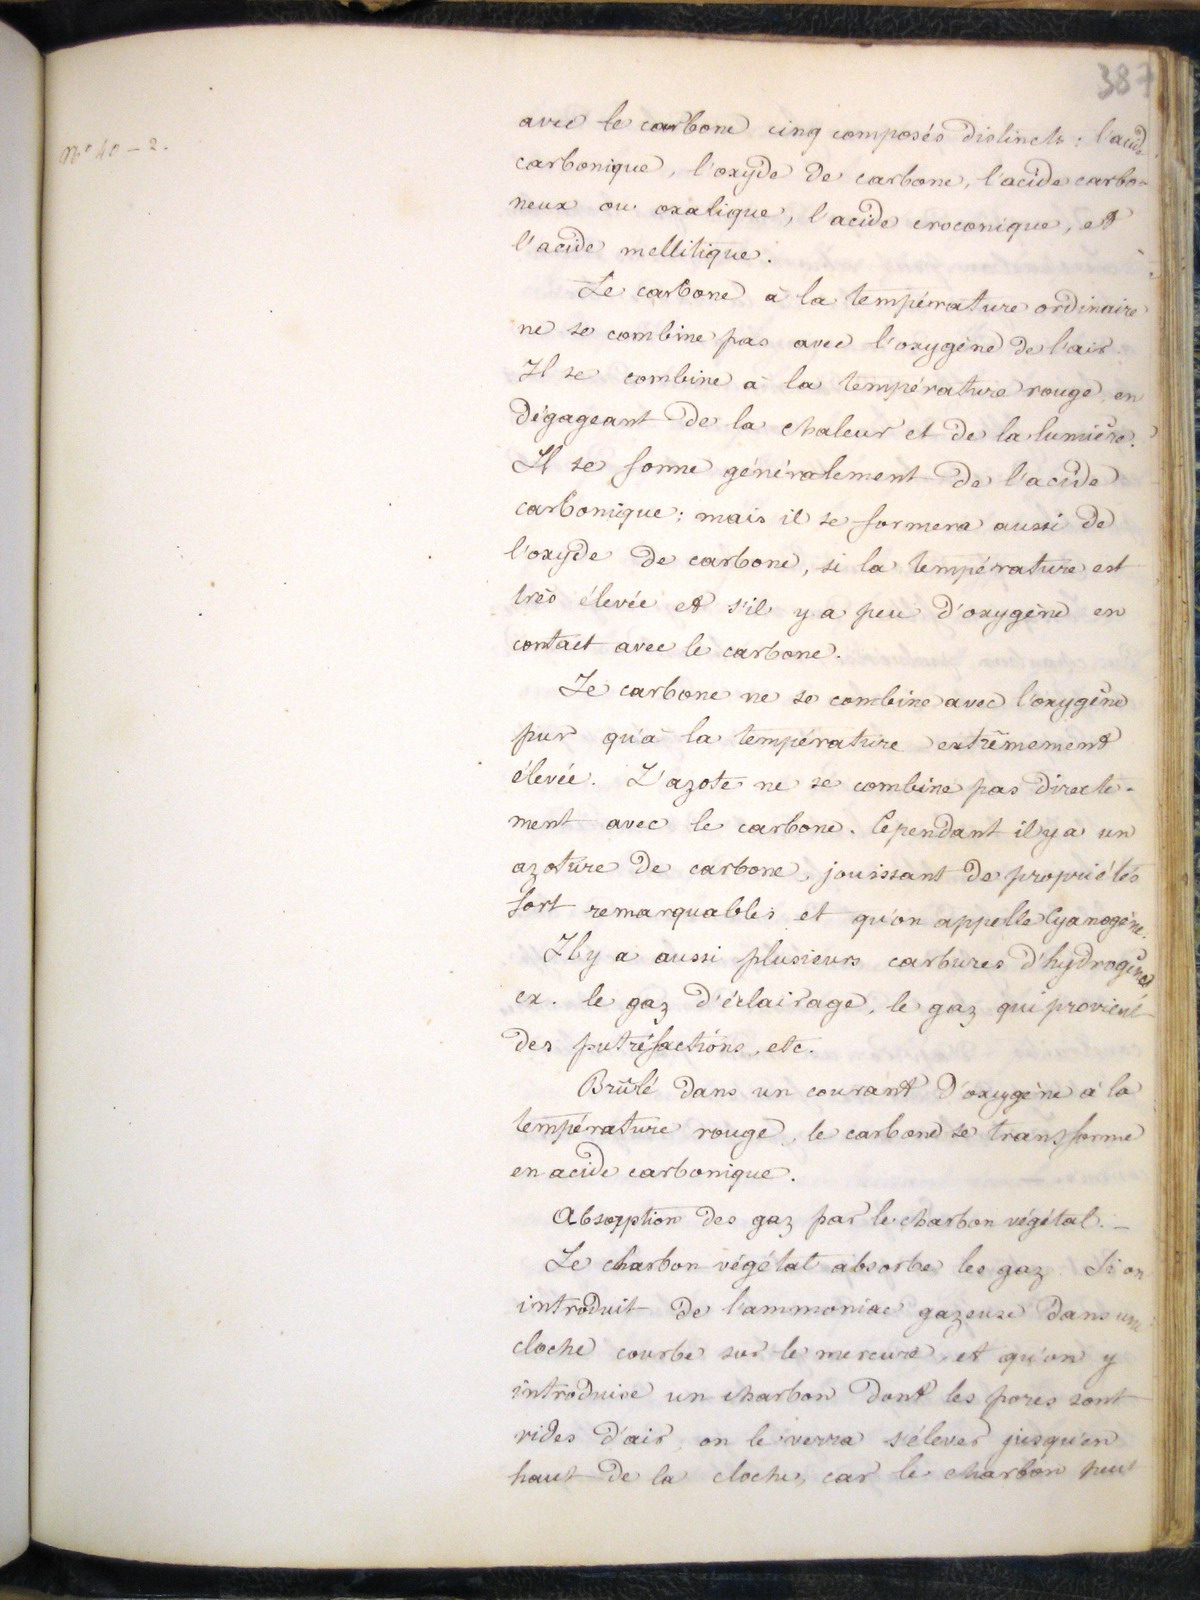 387
N° 40 - 2.
avec le carbone cinq composés distincts : l'acide
carbonique, l'oxyde de carbone, l'acide carbo-
neux ou oxalique, l'acide croconique, et
l'acide mellitique.
Le carbone à la température ordinaire
ne se combine pas avec l'oxygène de l'air.
Il se combine à la température rouge en
dégageant de la chaleur et de la lumière.
Il se forme généralement de l'acide
carbonique ; mais il se formera aussi de
l'oxyde de carbone, si la température est
très élevée et s'il y a peu d'oxygène en
contact avec le carbone.
Le carbone ne se combine avec l'oxygène
pur qu'à la température extrêmement
élevée. L'azote ne se combine pas directe-
ment avec le carbone. Cependant il y a un
azoture de carbone, jouissant de propriétés
fort remarquables et qu'on appelle Cyanogène.
Il y a aussi plusieurs carbures d'hydrogène
ex. le gaz d'éclairage, le gaz qui provient
des putréfactions, etc.
Brûlé dans un courant d'oxygène à la
température rouge, le carbone se transforme
en acide carbonique.
Absorption des gaz par le charbon végétal. _
Le charbon végétal absorbe les gaz. Si on
introduit de l'ammoniac gazeuse dans une
cloche courbe sur le mercure, et qu'on y
introduise un charbon dont les pores sont
vides d'air, on le verra s'élever jusqu'en
haut de la cloche, car le charbon peut